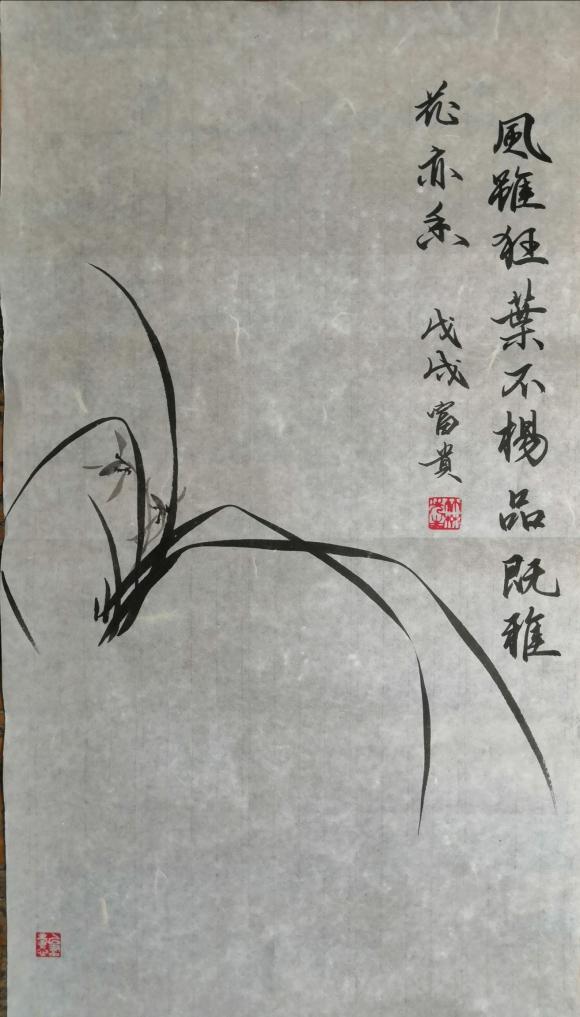 風雖狂葉不楊品既雅
花亦香
戊戌富貴